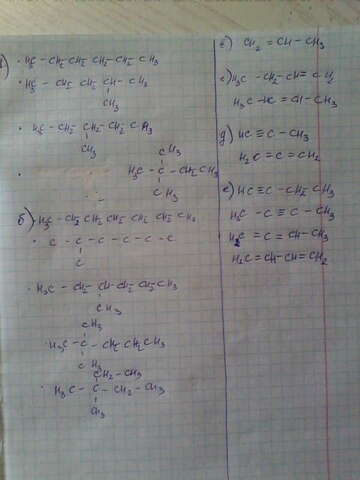 · H₃C - CH₂ CH₂ CH₂ - CH₂ - CH₃
· H₃C - CH₂ CH₂ CH - CH₃
CH₃
· H₃C - CH₂ - CH₂ - CH₂ - CH₃
CH₃
CH₃
· H₃C - C - CH₂ CH₃
CH₃
б) H₃C - CH₂ CH₂ CH₂ CH₂ CH₂ CH₃
· C - C - C - C - C - C
C
· H₃C - CH₂ - CH - CH₂ CH₂ CH₃
CH₃
CH₃
· H₃C - C - CH₂ CH₂ CH₃
CH₃
CH₂ - CH₃
· H₃C - C - CH₂ - CH₃
CH₃
CH₂ = CH - CH₃
H₃C - CH₂ - CH =
H₃C - HC = CH - CH₃
д) HC ≡ C - CH₃
H₂C = C = CH₂
е) HC ≡ C - CH₂ CH₃
H₃C - C ≡ C - CH₃
H₂C = C = CH - CH₃
H₂C = CH - CH = CH₂